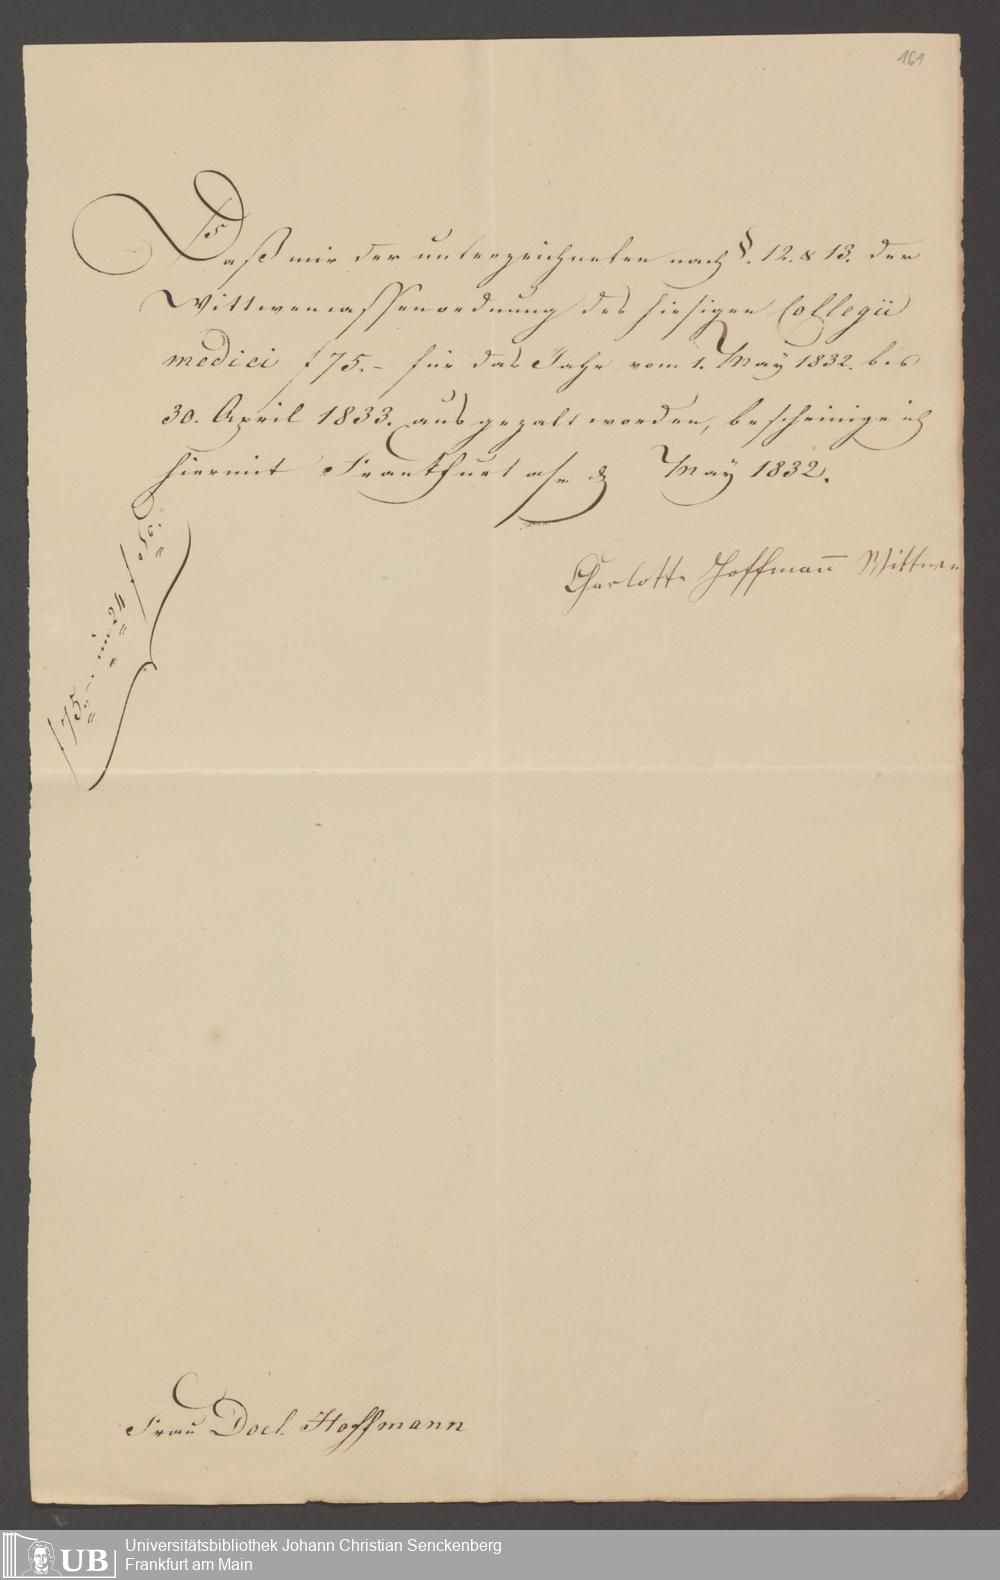 161
Daß mir der unterzeichneten nach §. 12. & 13. der
Wittwencassenordnung des hiesigen Collegii
medici f 75.- für das Jahr vom 1. May 1832. bis
30. April 1833. ausgezalt worden, bescheinige ich
hiermit Frankfurt a/m d May 1832.
Charlotte Hoffmann Wittwe
f 75.-. im 24 f
Frau Doct. Hoffmann
UB Universitätsbibliothek Johann Christian Senckenberg
Frankfurt am Main